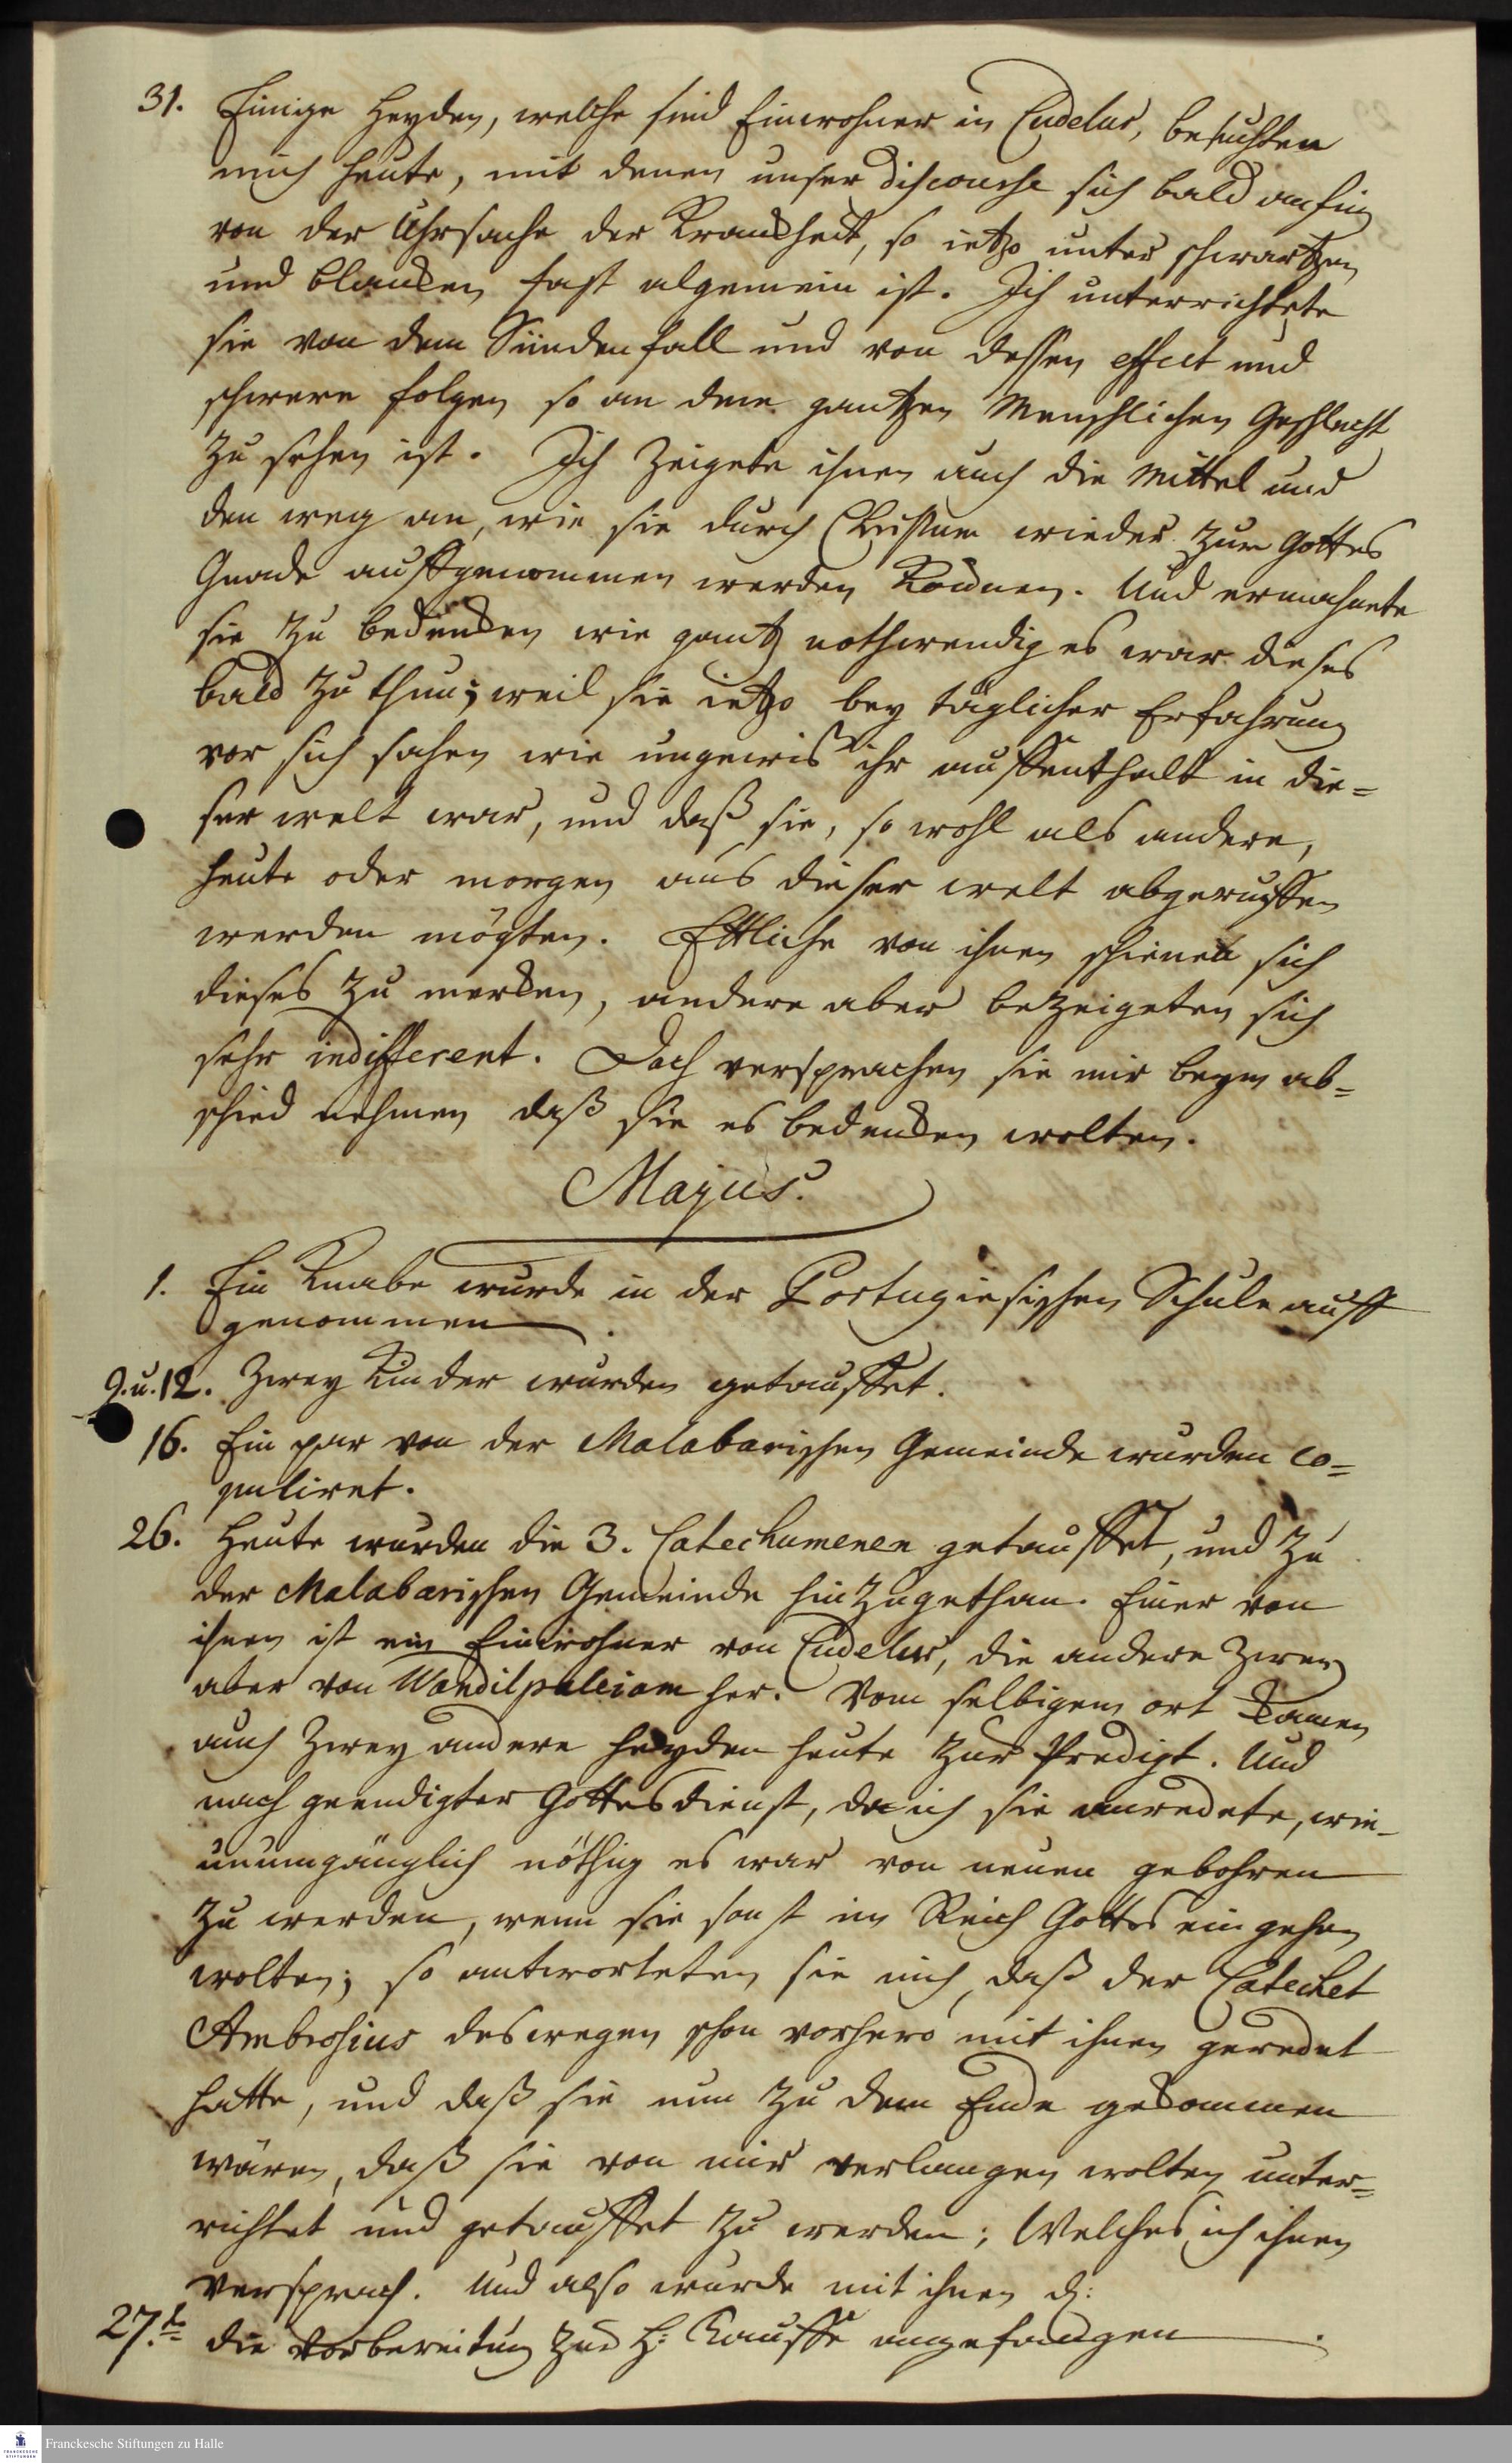 31. Einige Heyden, welche sind Einwohner in Cudelur, besuchten
mich heute, mit denen unser discourse sich bald anfing
von der Uhrsache der Kranckheit, so ietzo unter schwartzen
und blancken fast algemein ist. Ich unterrichtete
sie von dem Sündenfall und von dessen effect und
schwere folgen so an dem gantzen Menschlichen Geschlecht
zu sehen ist. Ich zeigete ihnen auch die Mittel und
den weg an, wie sie durch Christum wieder zur Gottes
Gnade auffgenommen werden können. Und ermahnete
sie zu bedencken wie gantz nothwendig es war dieses
bald zu thun; weil sie ietzo bey täglicher Erfahrung
vor sich sahen wie ungewis ihr auffenthalt in die=
ser welt war, und daß sie, so wohl als andere,
heute oder morgen aus dieser welt abgeruffen
werden mögten. Ettliche von ihnen schienen sich
dieses zu mercken, andere aber bezeigeten sich
sehr indifferent. Doch versprachen sie mir beym ab=
schied nehmen daß sie es bedencken wolten.
Majus.
1. Ein Knabe wurde in der Portugiesischen Schule auff
genommen.
9. u. 12. Zwey Kinder wurden getauffet.
16. Ein par von der Malabarischen Gemeinde wurden co=
puliret.
26. Heute wurden die 3. Catechumenen getauffet, und zu
der Malabarischen Gemeinde hinzugethan. Einer von
ihnen ist ein Einwohner von Cudelur, die andere zwey
aber von Wandilpaleiam her. Vom selbigem ort kamen
auch zwey andere heyden heute zur Predigt. Und
nach geendigter Gottesdienst, da ich sie anredete, wie
unumgänglich nöthig es war von neuen gebohren
zu werden, wenn sie sonst im Reich Gottes eingehen
wolten; so antworteten sie mich, daß der Catechet
Ambrosius deswegen schon vorhero mit ihnen geredet
hatte, und daß sie nun zu dem Ende gekommen
wären, daß sie von mir verlangen wolten unter=
richtet und getauffet zu werden; Welches ich ihnen
versprach. Und also wurde mit ihnen d:
27.t die vorbereitung zur H: Tauffe angefangen.
Franckesche Stiftungen zu Halle